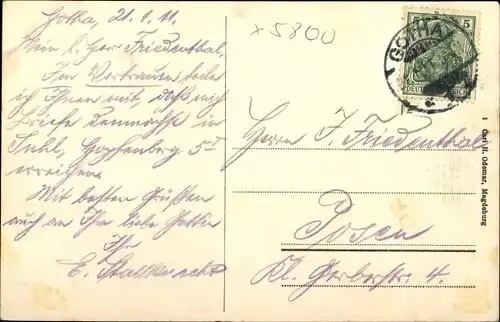 Gotha, 21.1.11.
Mein l. Herr Friedenthal,
Im Vertrauen teile
ich Ihnen mit, daß mich
Briefe demnächst in
Suhl, Gothenberg 5 I
erreichen.
Mit besten Grüßen
auch an Ihre liebe Gattin
Ihr
E. Stallknecht
x 5800
5 5
GOTHA
DEUTSCHES REICH
Herrn J. Friedenthal
Posen
Kl. Gerberstr. 4.
1 Carl H. Odemar, Magdeburg